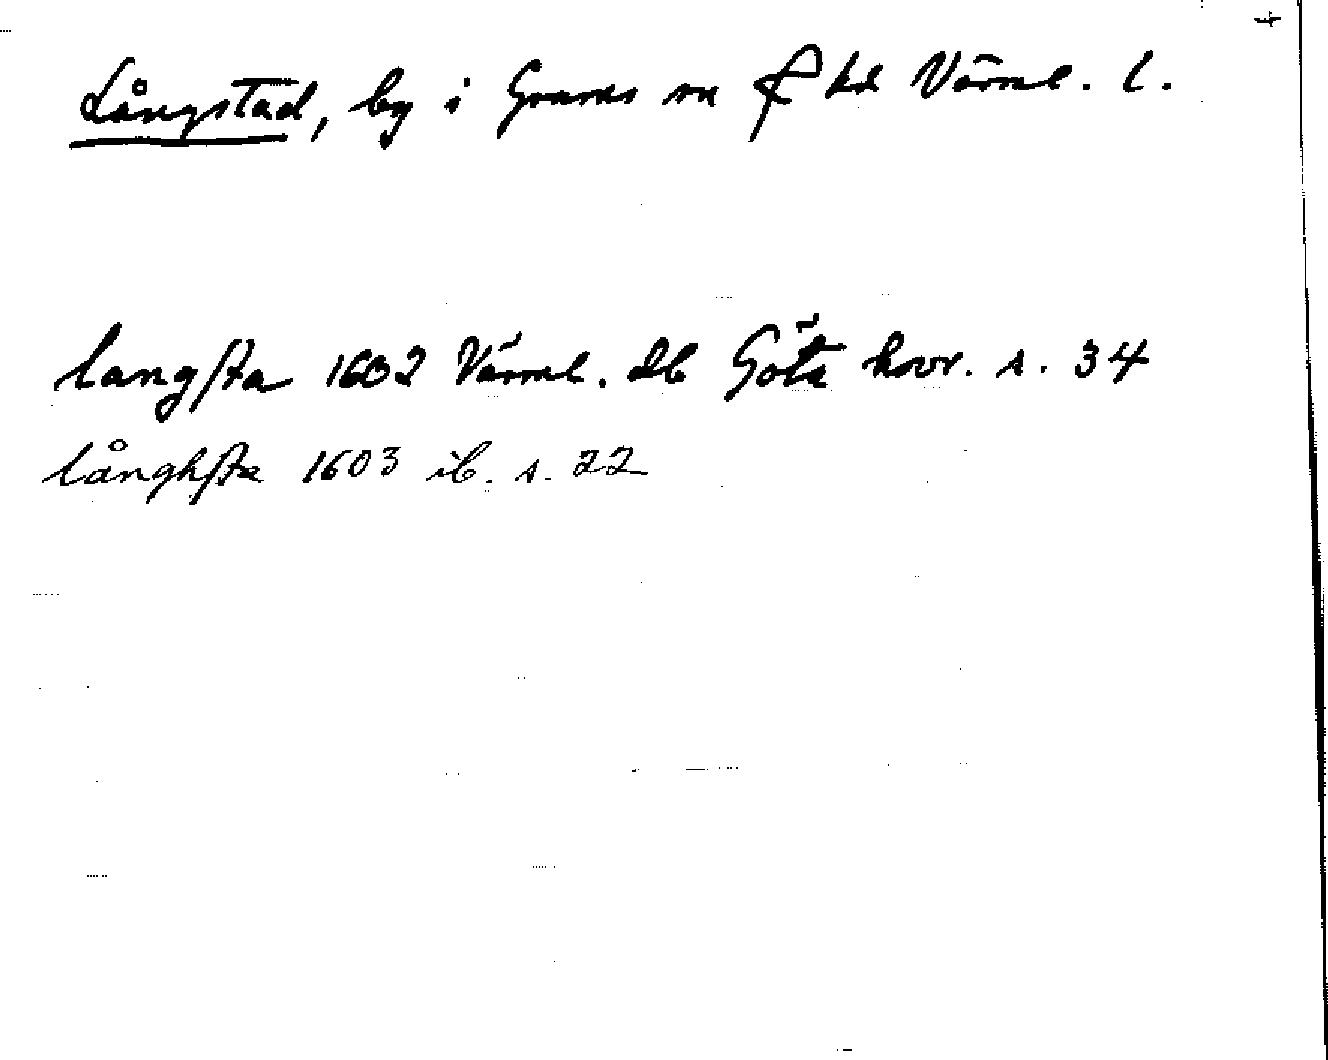 Långstad, by i Grums sn hd Värml. l.
langsta 1602 Värml. db Göta hovr. s. 34
långhsta 1603 ib. s. 22